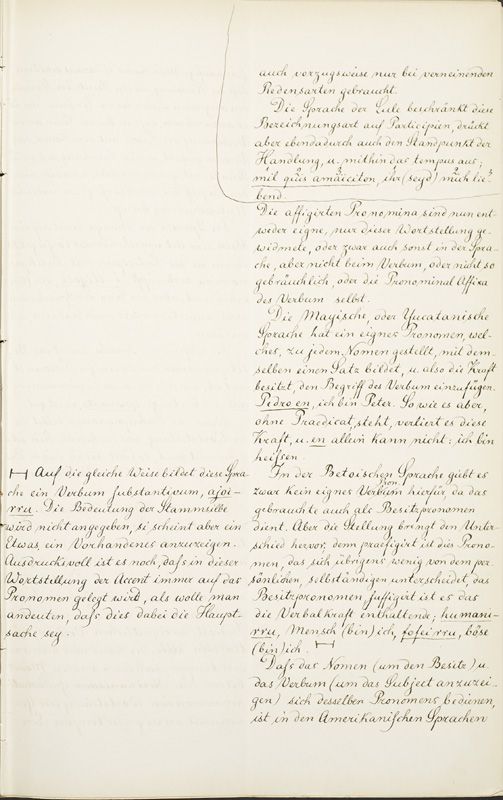 auch vorzugsweise nur bei verneinenden
Redensarten gebraucht.
Die Sprache der Lule beschränkt diese
Bezeichnungsart auf Participien, drückt
aber ebendadurch auch den Standpunkt der
Handlung, u. mithin das tempus aus;
mil quis amaiciton, ihr (seyd) mich lie-
bend.
Die affigirten Pronomina sind nun ent-
weder eigne, nur dieser Wortstellung ge-
widmete, oder zwar auch sonst in der Spra-
che, aber nicht beim Verbum, oder nicht so
gebräuchlich, oder die Pronominal Affixa
des Verbum selbst.
Die Mayische, oder Yucatanische
Sprache hat ein eignes Pronomen, wel-
ches, zu jedem Nomen gestellt, mit dem-
selben einen Satz bildet, u. also die Kraft
besitzt, den Begriff des Verbum einzufügen.
Pedro en, ich bin Peter. So wie es aber,
ohne Praedicat, steht, verliert es diese
Kraft, u. en allein kann nicht: ich bin
heissen.
In der Betoischen Sprache giebt es
zwar kein eignes Pronomen hierfür, da das
gebrauchte auch als Besitzpronomen
dient. Aber die Stellung bringt den Unter-
schied hervor, denn praefigirt ist dies Prono-
men, das sich übrigens wenig von dem per-
sönlichen, selbständigen unterscheidet, das
Besitzpronomen suffigirt ist es das
die Verbalkraft enthaltende; humani-
rru, Mensch (bin) ich, fofei rru, böse
(bin) ich. ⊢⊣
Dass das Nomen (um den Besitz) u.
das Verbum (um das Subject anzuzei-
gen) sich desselben Pronomens bedienen,
ist in den Amerikanischen Sprachen
⊢⊣ Auf die gleiche Weise bildet diese Spra-
che ein Verbum substantivum, ajoi-
rru. Die Bedeutung der Stammsilbe
wird nicht angegeben, sie scheint aber ein
Etwas, ein Vorhandenes anzuzeigen.
Ausdrucksvoll ist es noch, dass in dieser
Wortstellung der Accent immer auf das
Pronomen gelegt wird, als wolle man
andeuten, dass dies dabei die Haupt-
sache sey.